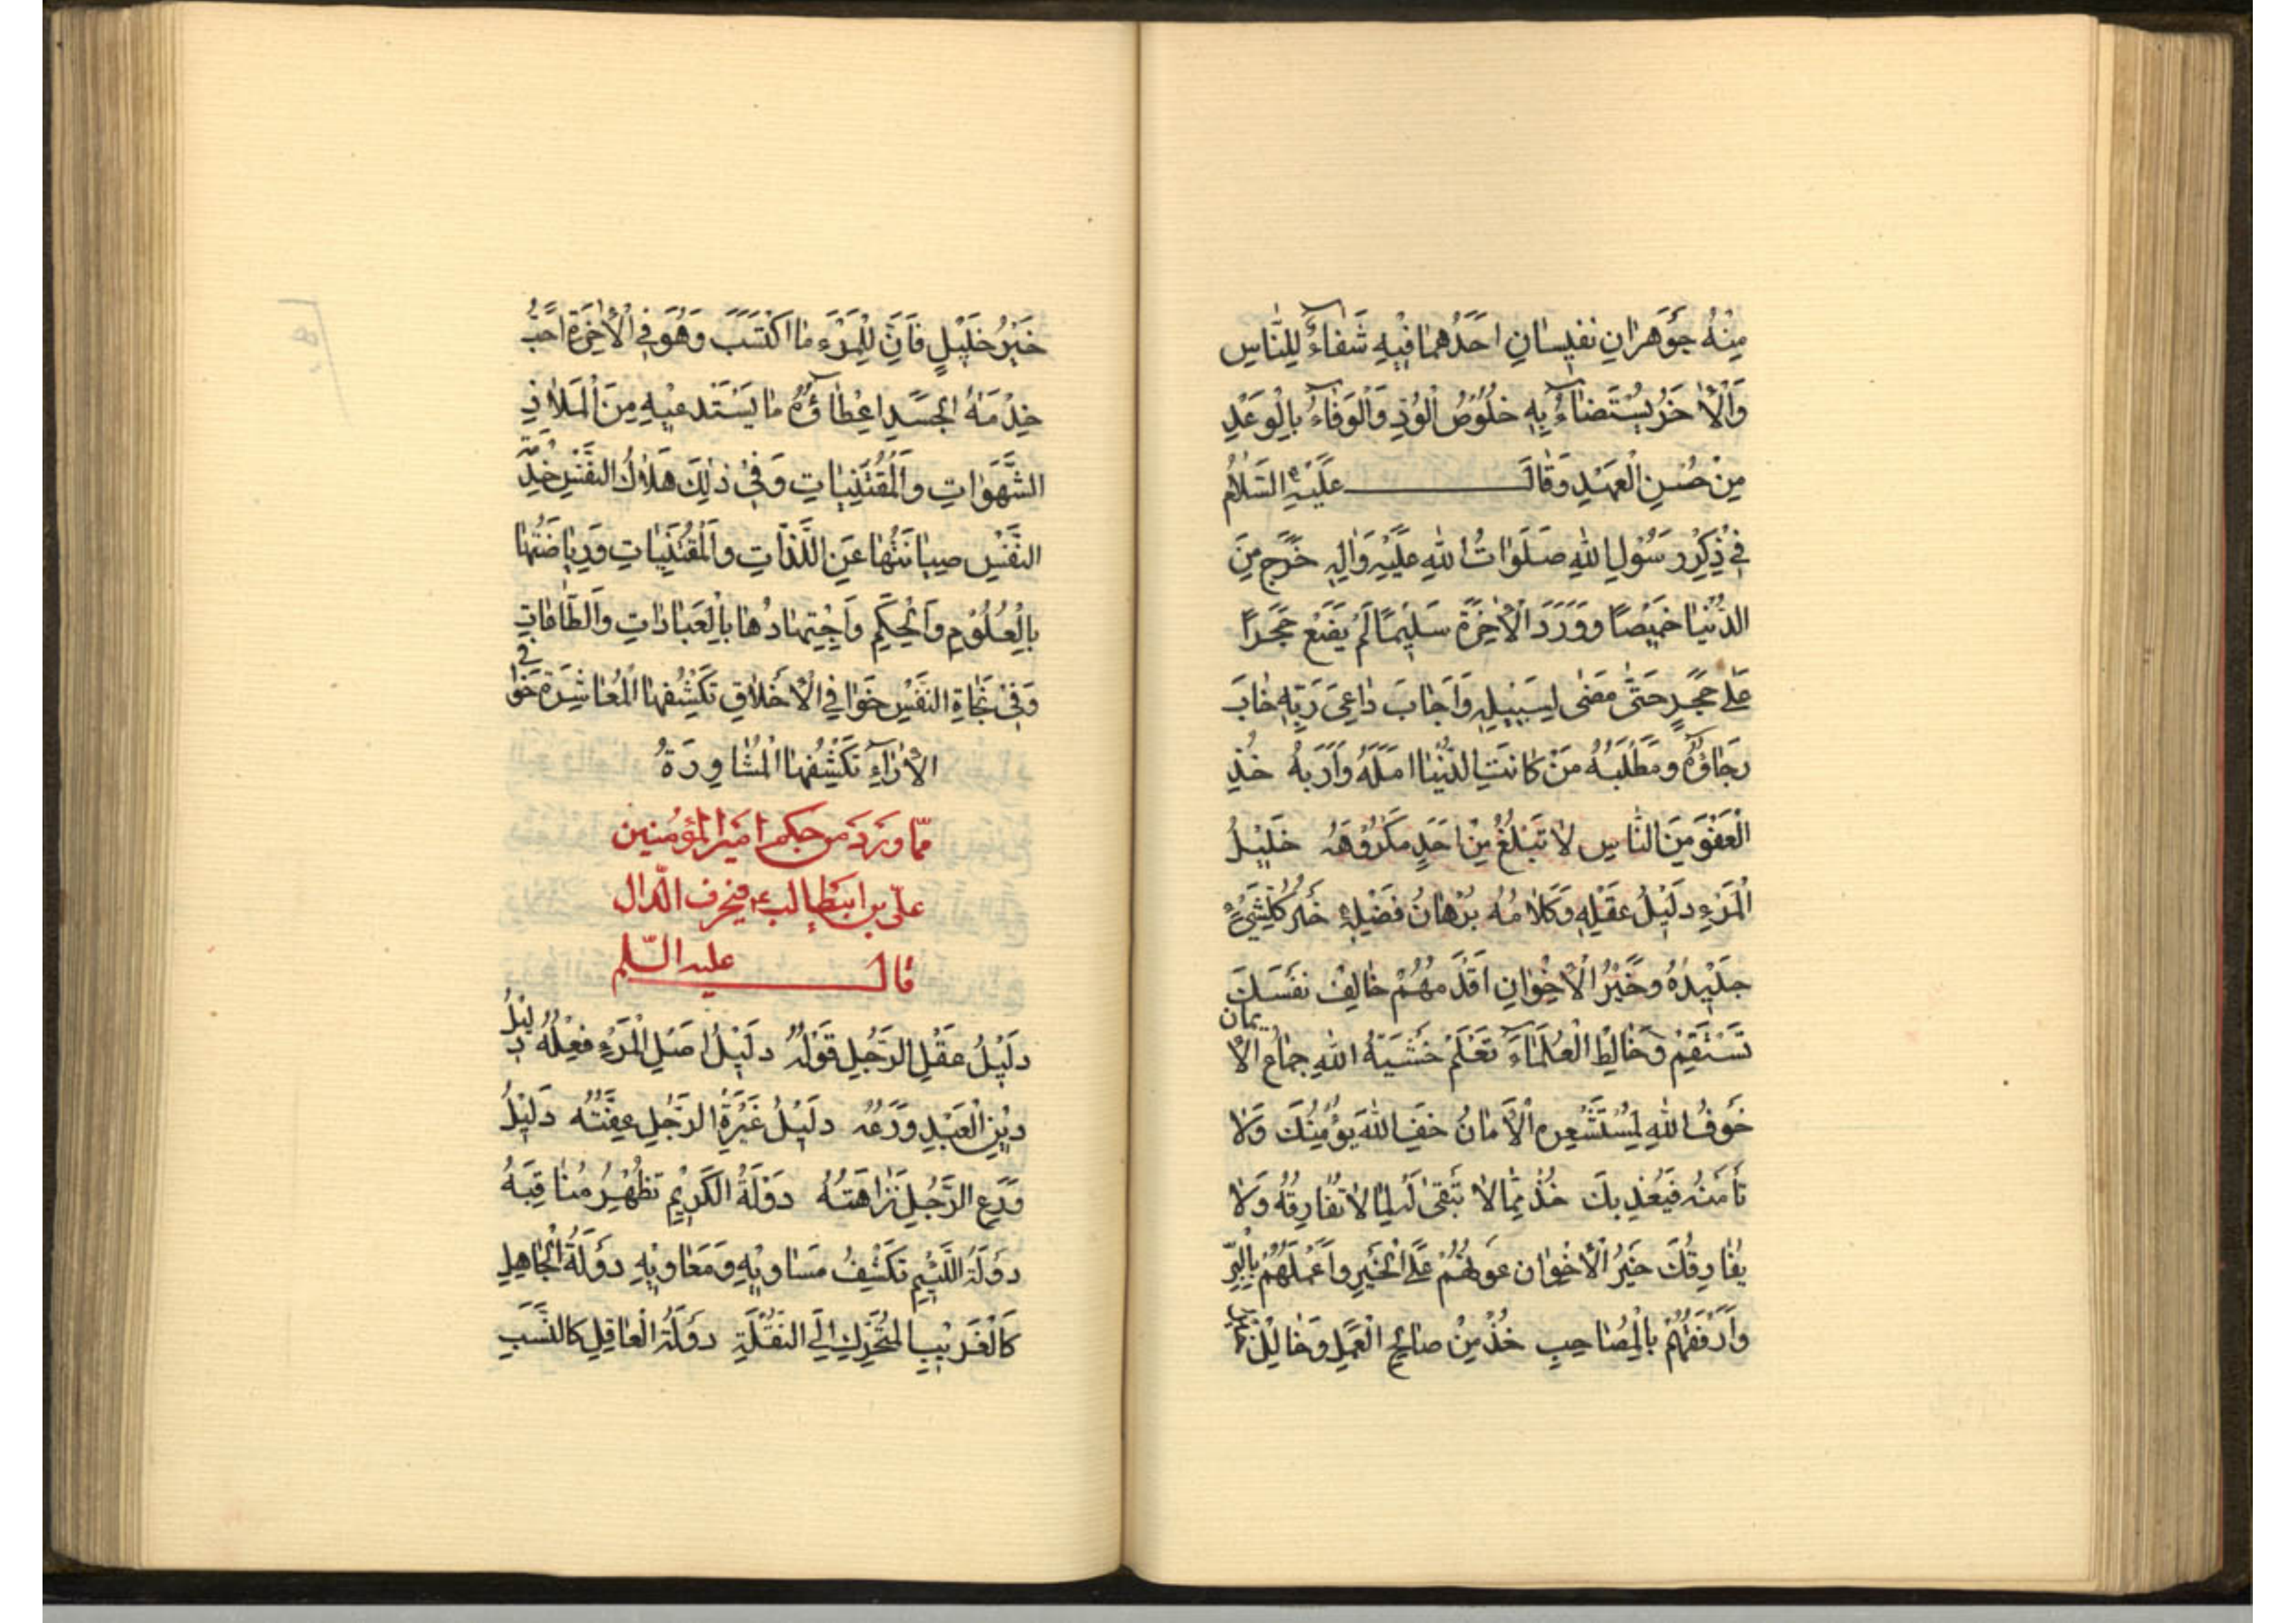 مِنْهُ جَوْهَرانِ نَفيسانِ اَحَدُهُما فيْهِ شَفاءٌ لِلنّاسِ
وَالْاٰخَرُ يُسْتَضاءُ بِهِ خُلُوْصُ الْوُدِّ وَالْوَفاءُ بِالْوَعْدِ
مِنْ حُسْنِ الْعَهْدِ وَقالَ عَلَيْهِ السَّلامُ
فِيْ ذِكْرِ رَسُوْلِ اللهِ صَلَواتُ اللهِ عَلَيْهِ وَاٰلِهِ خَرَجَ مِنَ
الدُّنْيا خَميْصًا وَوَرَدَ الْاٰخِرَةَ سَليْمًا لَمْ يَضَعْ حَجَرًا
عَلٰى حَجَرٍ حَتّٰى مَضٰى لِسَبيْلِهِ وَاَجابَ داعِىَ رَبِّهِ خابَ
رَجاؤُهُ وَمَطْلَبُهُ مَنْ كانَتِ الدُّنْيا اَمَلَهُ وَاَرَبَهُ خُذِ
الْعَفْوَ مِنَ النّاسِ لا تَبْلُغْ مِنْ اَحَدٍ مَكْرُوْهَهُ خَليْلُ
الْمَرْءِ دَليْلُ عَقْلِهِ وَكَلامُهُ بُرْهانُ فَضْلِهِ خَيْرُ كُلِّ شَيْءٍ
جَديْدُهُ وَخَيْرُ الْاِخْوانِ اَقْدَمُهُمْ خالِفْ نَفْسَكَ
تَسْتَقِمْ وَخالِطِ الْعُلَماءَ تَعْلَمْ خَشْيَةُ اللهِ جِماعُ الْايمان
خَوْفُ اللهِ لِمُسْتَشْعِرِهِ الْاَمانُ خَفِ اللهَ يُؤْمِنْكَ وَلا
تَأْمَنْهُ فَيُعَذِّبكَ خُذْ مِمّا لا تَبْقٰى لَهُ لِما لا تُفارِقُهُ وَلا
يُفارِقُكَ خَيْرُ الْاِخْوان عَوْنُهُمْ عَلَى الْخَيْرِ وَاَعْمَلُهُمْ بِالْبِرِّ
وَاَرْفَقُهُمْ بِالْمُصاحِبِ خُذْ مِنْ صالِحِ الْعَمَلِ وَخالِلْ
خَيْرُ خَليْلٍ فَاِنَّ لِلْمَرْءِ ما اكْتَسَبَ وَهُوَ فِي الْاٰخِرَةِ اَحَبُّ
خِدْمَةُ الْجَسَدِ اِعْطاؤُهُ ما يَسْتَدعيْهِ مِنَ الْمَلاذِّ
الشَّهَواتِ وَالْمُقْتَنِياتِ وَفيْ ذٰلِكَ هَلاكُ النَّفْسِ خِدْمَةُ
النَّفْسِ صِيانَتُها عَنِ اللَّذّاتِ وَالْمُقْتَنِياتِ وَرِياضَتُها
بِالْعُلُوْمِ وَالْحِكَمِ وَاجْتِهادُها بِالْعِباداتِ وَالطّاعاتِ
وَفيْ نَجاةِ النَّفْسِ خَوافِي الْاَخْلاقِ تَكْشِفُهَا الْمُعاشَرَةُ خَوافي
الْاٰراءِ تَكْشِفُهَا الْمُشاوِرَةُ
ممّا ورَدَ من حكم امير المؤمنين
علىّ بن ابيطالب ع في حرف الدّال
قال عليه السّلم
دَليْلُ عَقْلِ الرَّجُلِ قَوْلُهُ دَليْلُ اَصْلِ الْمَرْءِ فِعْلُهُ دَليْلُ
ديْنِ الْعَبْدِ وَرَعُهُ دَليْلُ غَيْرَةِ الرَّجُلِ عِفَّتُهُ دَليْلُ
وَرَعِ الرَّجُلِ نَزاهَتُهُ دَوْلَةُ الْكَريْمِ تُظْهِرُ مَناقِبَهُ
دَوْلَةُ اللَّئيْمِ تَكْشِفُ مَساوِيْهِ وَمَعاوِيْهِ دَوْلَةُ الْجاهِلِ
كَالْغَريْبِ الْمُتَحَرِّكِ اِلَى النُّقْلَةِ دَوْلَةُ الْعاقِلِ كَالنَّسَبِ